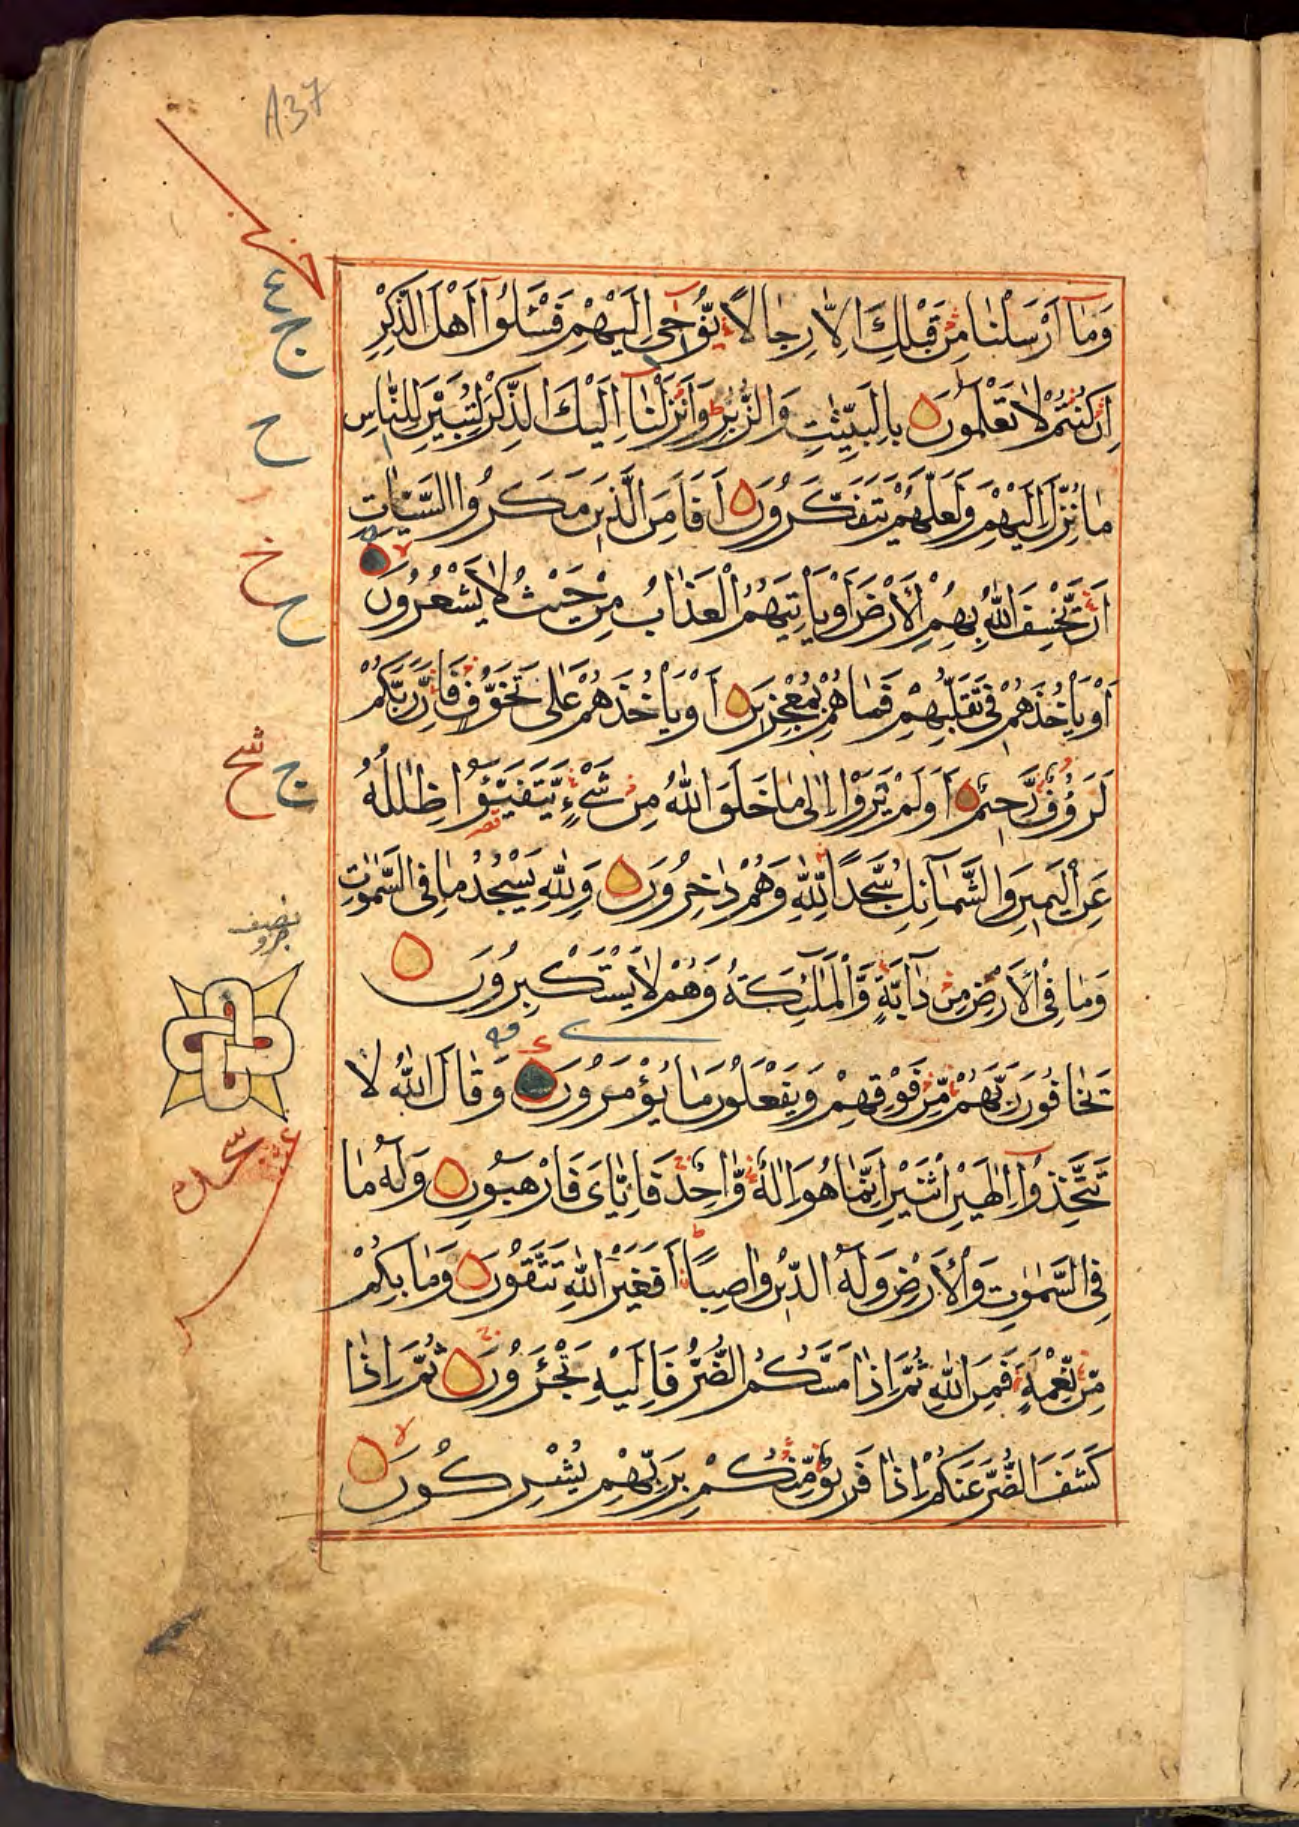 A37
وَمَآ أَرْسَلْنَا مِنْ قَبْلِكَ إِلَّا رِجَالًا يُّوْحٰى إِلَيْهِمْ فَسْـَٔلُوْٓا أَهْلَ الذِّكْرِ
إِنْ كُنْتُمْ لَا تَعْلَمُونَ بِالْبَيِّنٰتِ وَالزُّبُرِ وَأَنْزَلْنَآ إِلَيْكَ الذِّكْرَ لِتُبَيِّنَ لِلنَّاسِ
مَا نُزِّلَ إِلَيْهِمْ وَلَعَلَّهُمْ يَتَفَكَّرُونَ أَفَأَمِنَ الَّذِينَ مَكَرُوا السَّيِّاٰتِ
أَنْ يَّخْسِفَ اللّٰهُ بِهِمُ الْأَرْضَ أَوْ يَأْتِيَهُمُ الْعَذَابُ مِنْ حَيْثُ لَا يَشْعُرُونَ
أَوْ يَأْخُذَهُمْ فِى تَقَلُّبِهِمْ فَمَا هُمْ بِمُعْجِزِينَ أَوْ يَأْخُذَهُمْ عَلٰى تَخَوُّفٍ فَإِنَّ رَبَّكُمْ
لَرَءُوفٌ رَّحِيمٌ أَوَلَمْ يَرَوْا إِلٰى مَا خَلَقَ اللّٰهُ مِنْ شَىْءٍ يَّتَفَيَّؤُا ظِلٰلُهُ
عَنِ الْيَمِينِ وَالشَّمَآئِلِ سُجَّدًا لِلّٰهِ وَهُمْ دَاخِرُونَ وَلِلّٰهِ يَسْجُدُ مَا فِى السَّمٰوٰتِ
وَمَا فِى الْأَرْضِ مِنْ دَآبَّةٍ وَّالْمَلٰٓئِكَةُ وَهُمْ لَا يَسْتَكْبِرُونَ
يَخَافُونَ رَبَّهُمْ مِّنْ فَوْقِهِمْ وَيَفْعَلُونَ مَا يُؤْمَرُونَ وَقَالَ اللّٰهُ لَا
تَتَّخِذُوٓا إِلٰهَيْنِ اثْنَيْنِ إِنَّمَا هُوَ إِلٰهٌ وَّاحِدٌ فَإِيَّاىَ فَارْهَبُونِ وَلَهُ مَا
فِى السَّمٰوٰتِ وَالْأَرْضِ وَلَهُ الدِّينُ وَاصِبًا أَفَغَيْرَ اللّٰهِ تَتَّقُونَ وَمَا بِكُمْ
مِّنْ نِّعْمَةٍ فَمِنَ اللّٰهِ ثُمَّ إِذَا مَسَّكُمُ الضُّرُّ فَإِلَيْهِ تَجْـَٔرُونَ ثُمَّ إِذَا
كَشَفَ الضُّرَّ عَنْكُمْ إِذَا فَرِيقٌ مِّنْكُمْ بِرَبِّهِمْ يُشْرِكُونَ
ع
ج
ح
خ
ح
ج
نصف
جزو